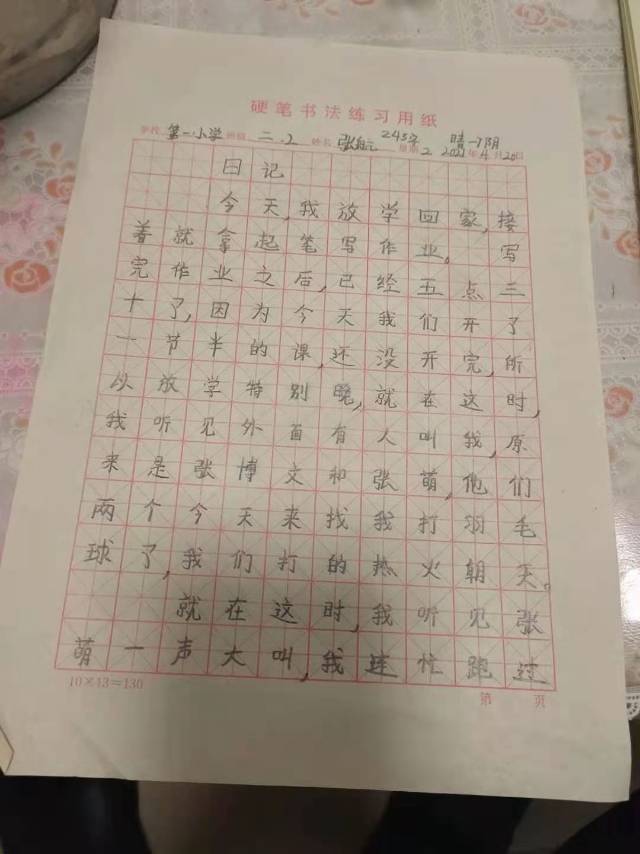 硬笔书法练习用纸
学校 第一小学 班级 二.2 姓名 张航 245字 星期 2 2021年4月20日 晴-阴
日记
今天,我放学回家,接
着就拿起笔写作业,写
完作业之后,已经五点三
十了,因为今天我们开了
一节半的课,还没开完,所
以放学特别晚,就在这时,
我听见外面有人叫我,原
来是张博文和张萌,他们
两个今天来找我打羽毛
球了,我们打的热火朝天。
就在这时,我听见张
萌一声大叫,我连忙跑过
10×13=130
第 页